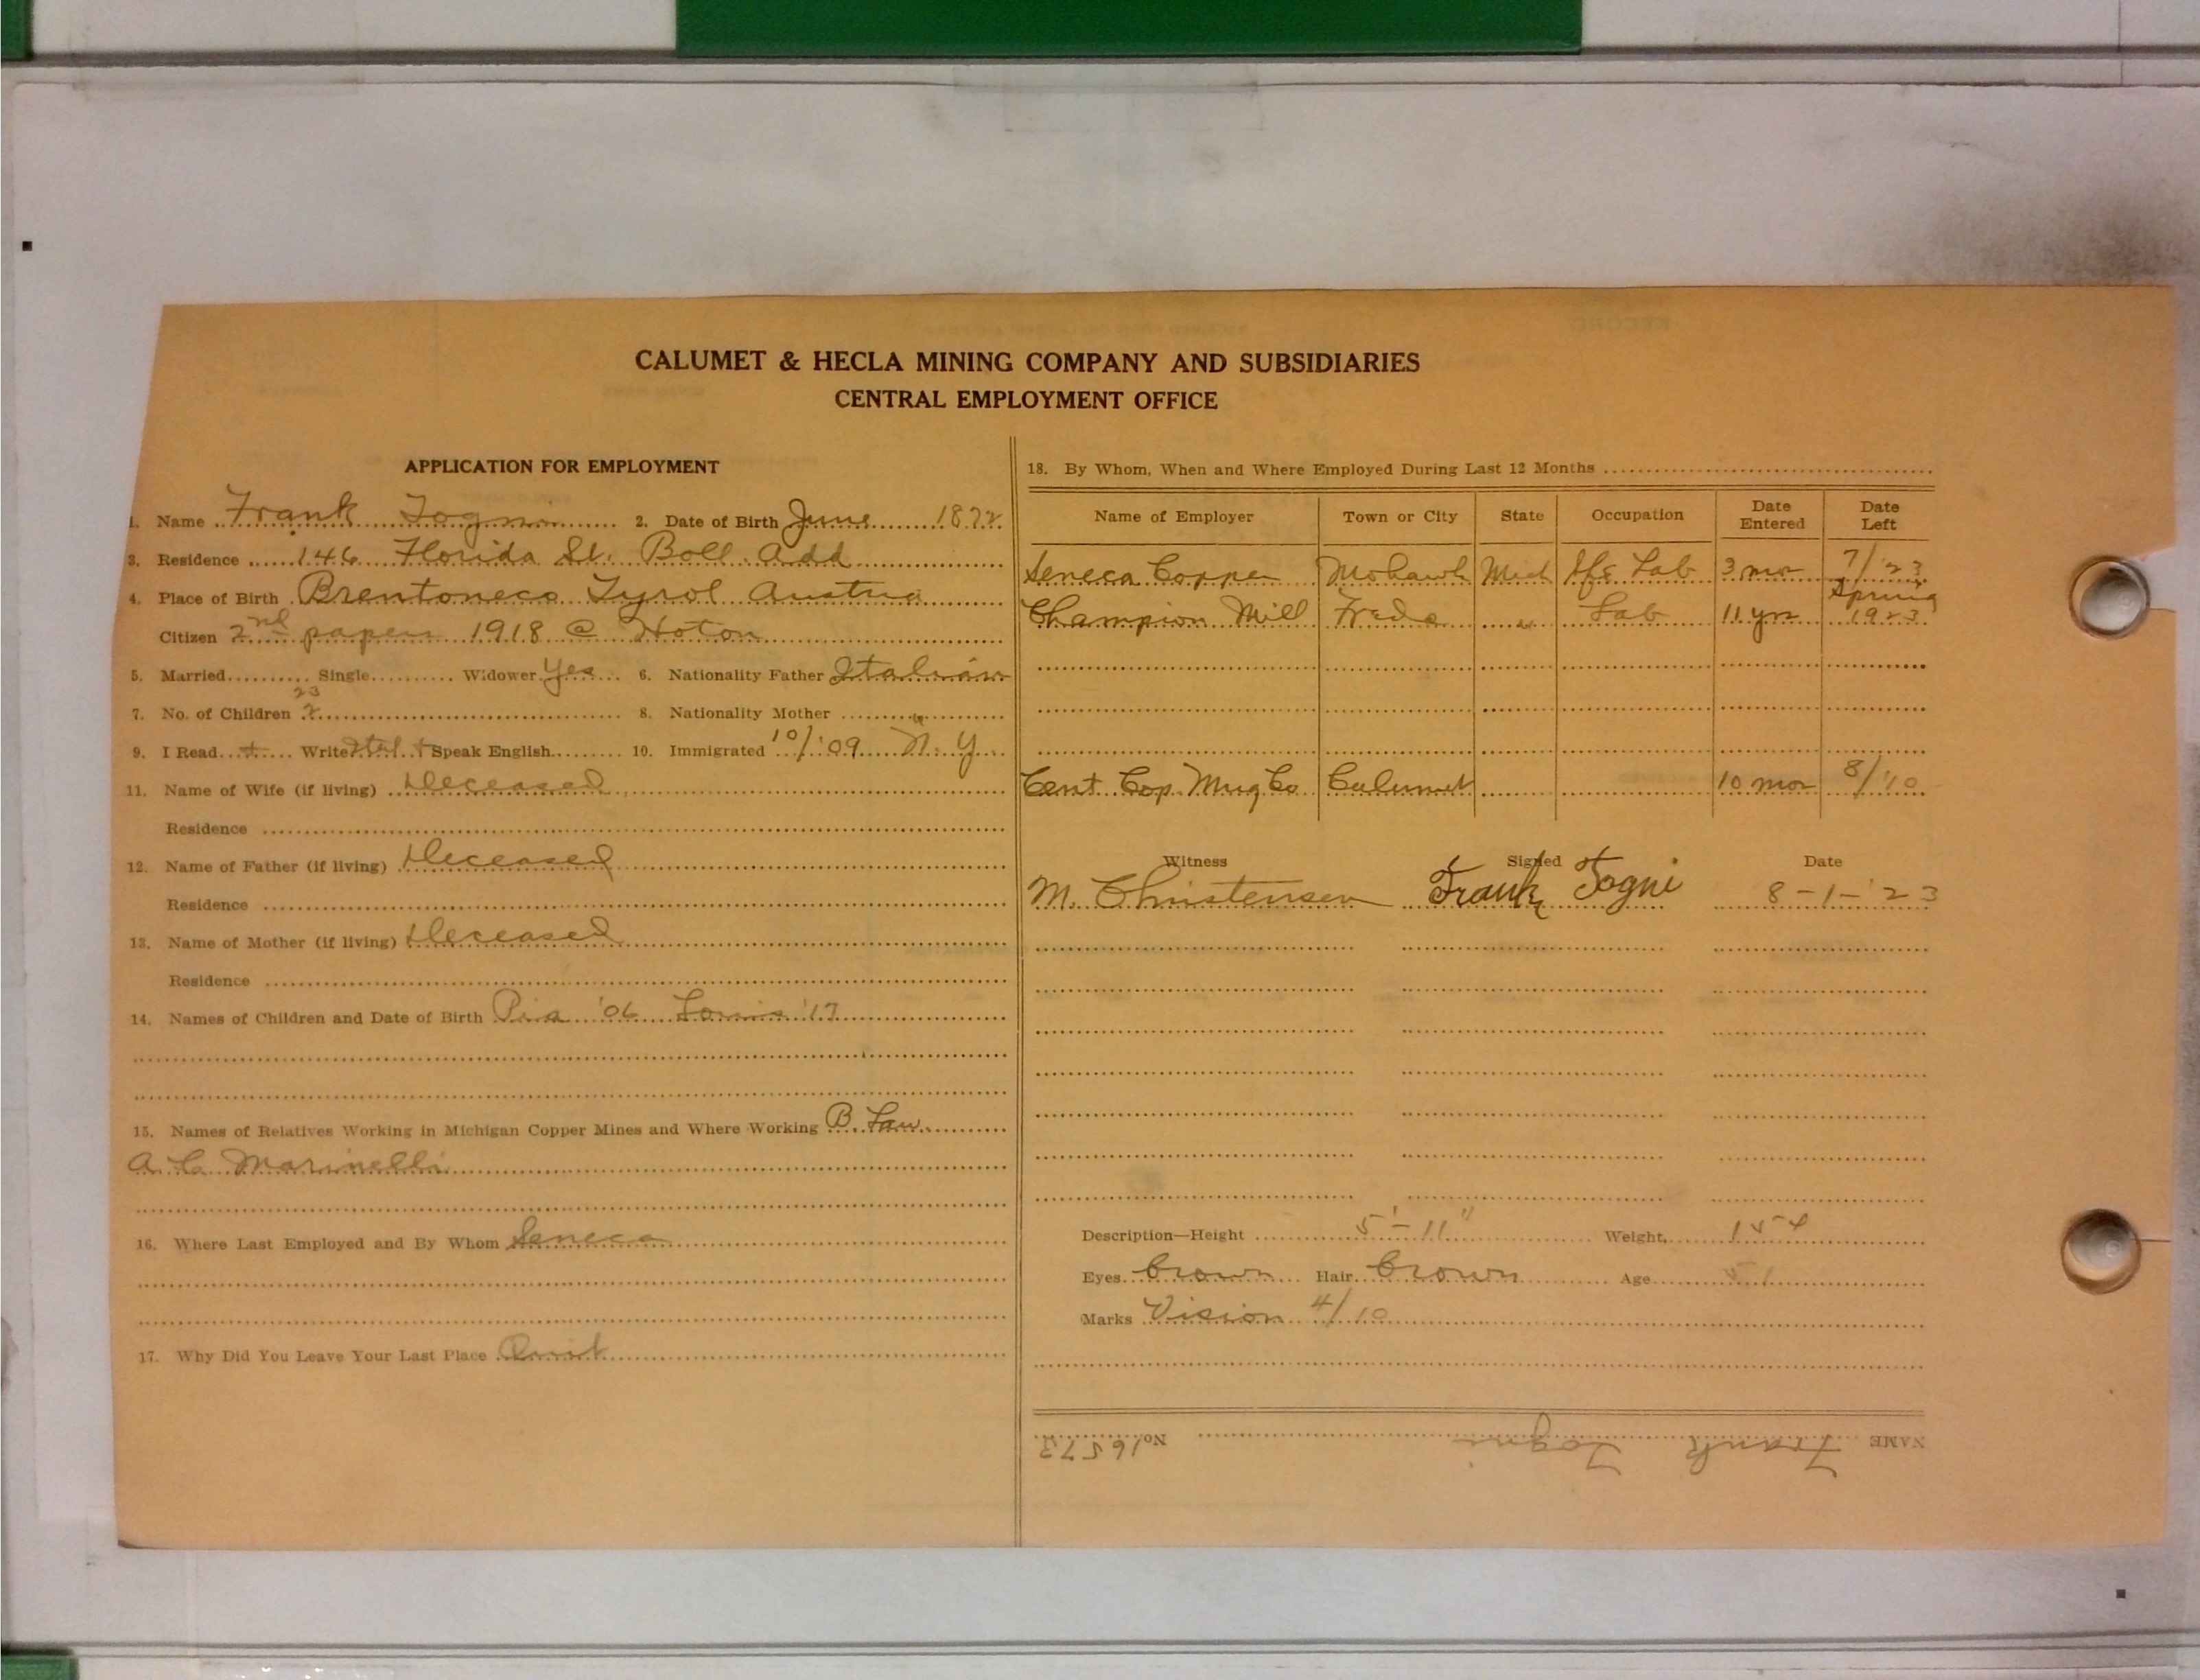 CALUMET & HECLA MINING COMPANY AND SUBSIDIARIES
CENTRAL EMPLOYMENT OFFICE
APPLICATION FOR EMPLOYMENT
1. Name Frank Togni 2. Date of Birth June 1872
3. Residence 146 Florida St. Boll. Add
4. Place of Birth Brentoneco Tyrol Austria
Citizen 2nd papers 1918 @ Hoton
5. Married Single Widower Yes 6. Nationality Father Italian
23
7. No. of Children 2 8. Nationality Mother "
9. I Read + Write Ital + Speak English 10. Immigrated 10/'09 N.Y.
11. Name of Wife (if living) Deceased
Residence
12. Name of Father (if living) Deceased
Residence
13. Name of Mother (if living) Deceased
Residence
14. Names of Children and Date of Birth Pia '06 Louis '17
15. Names of Relatives Working in Michigan Copper Mines and Where Working B. Law
A. C. Marinelli
16. Where Last Employed and By Whom Seneca
17. Why Did You Leave Your Last Place Quit
18. By Whom, When and Where Employed During Last 12 Months
Name of Employer Town or City State Occupation Date Entered Date Left
Seneca Copper Mohawk Mich Sfc Lab 3 mos 7/'23
Champion Mill Freda " Lab 11 yrs Spring 1923
Cent Cop Mng Co Calumet 10 mos 8/'10
Witness Signed Date
M. Christensen Frank Togni 8-1-'23
Description—Height 5'-11" Weight 154
Eyes Brown Hair Brown Age 51
Marks Vision 4/10
NAME Frank Togni No. 16573